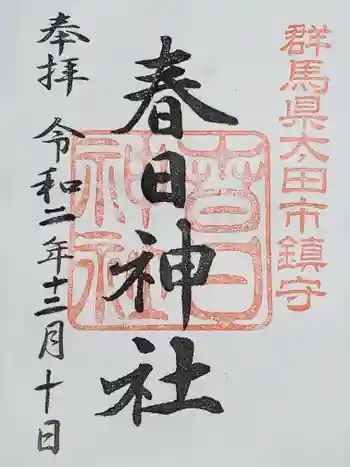 群馬県太田市鎮守
春日神社
奉拝
令和二年十二月十日
春日
神社